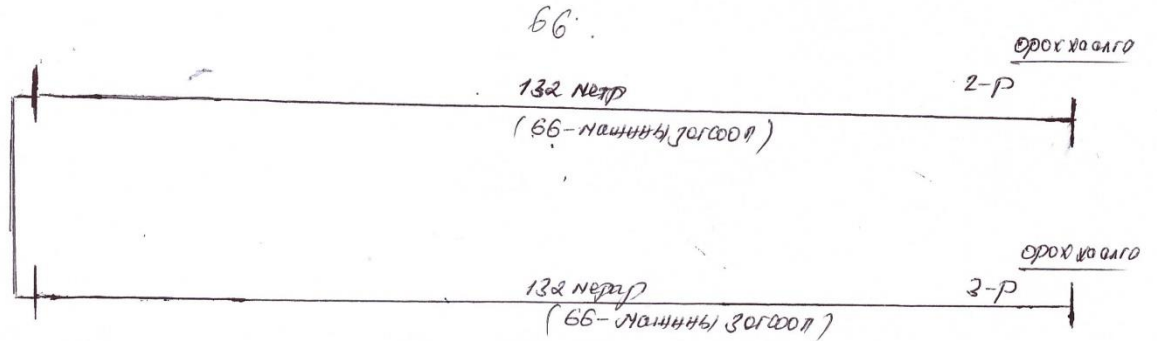 66.
орох хаалга
132 метр
2-р
(66-машины зогсоол)
орох хаалга
132 метр
3-р
(66-машины зогсоол)